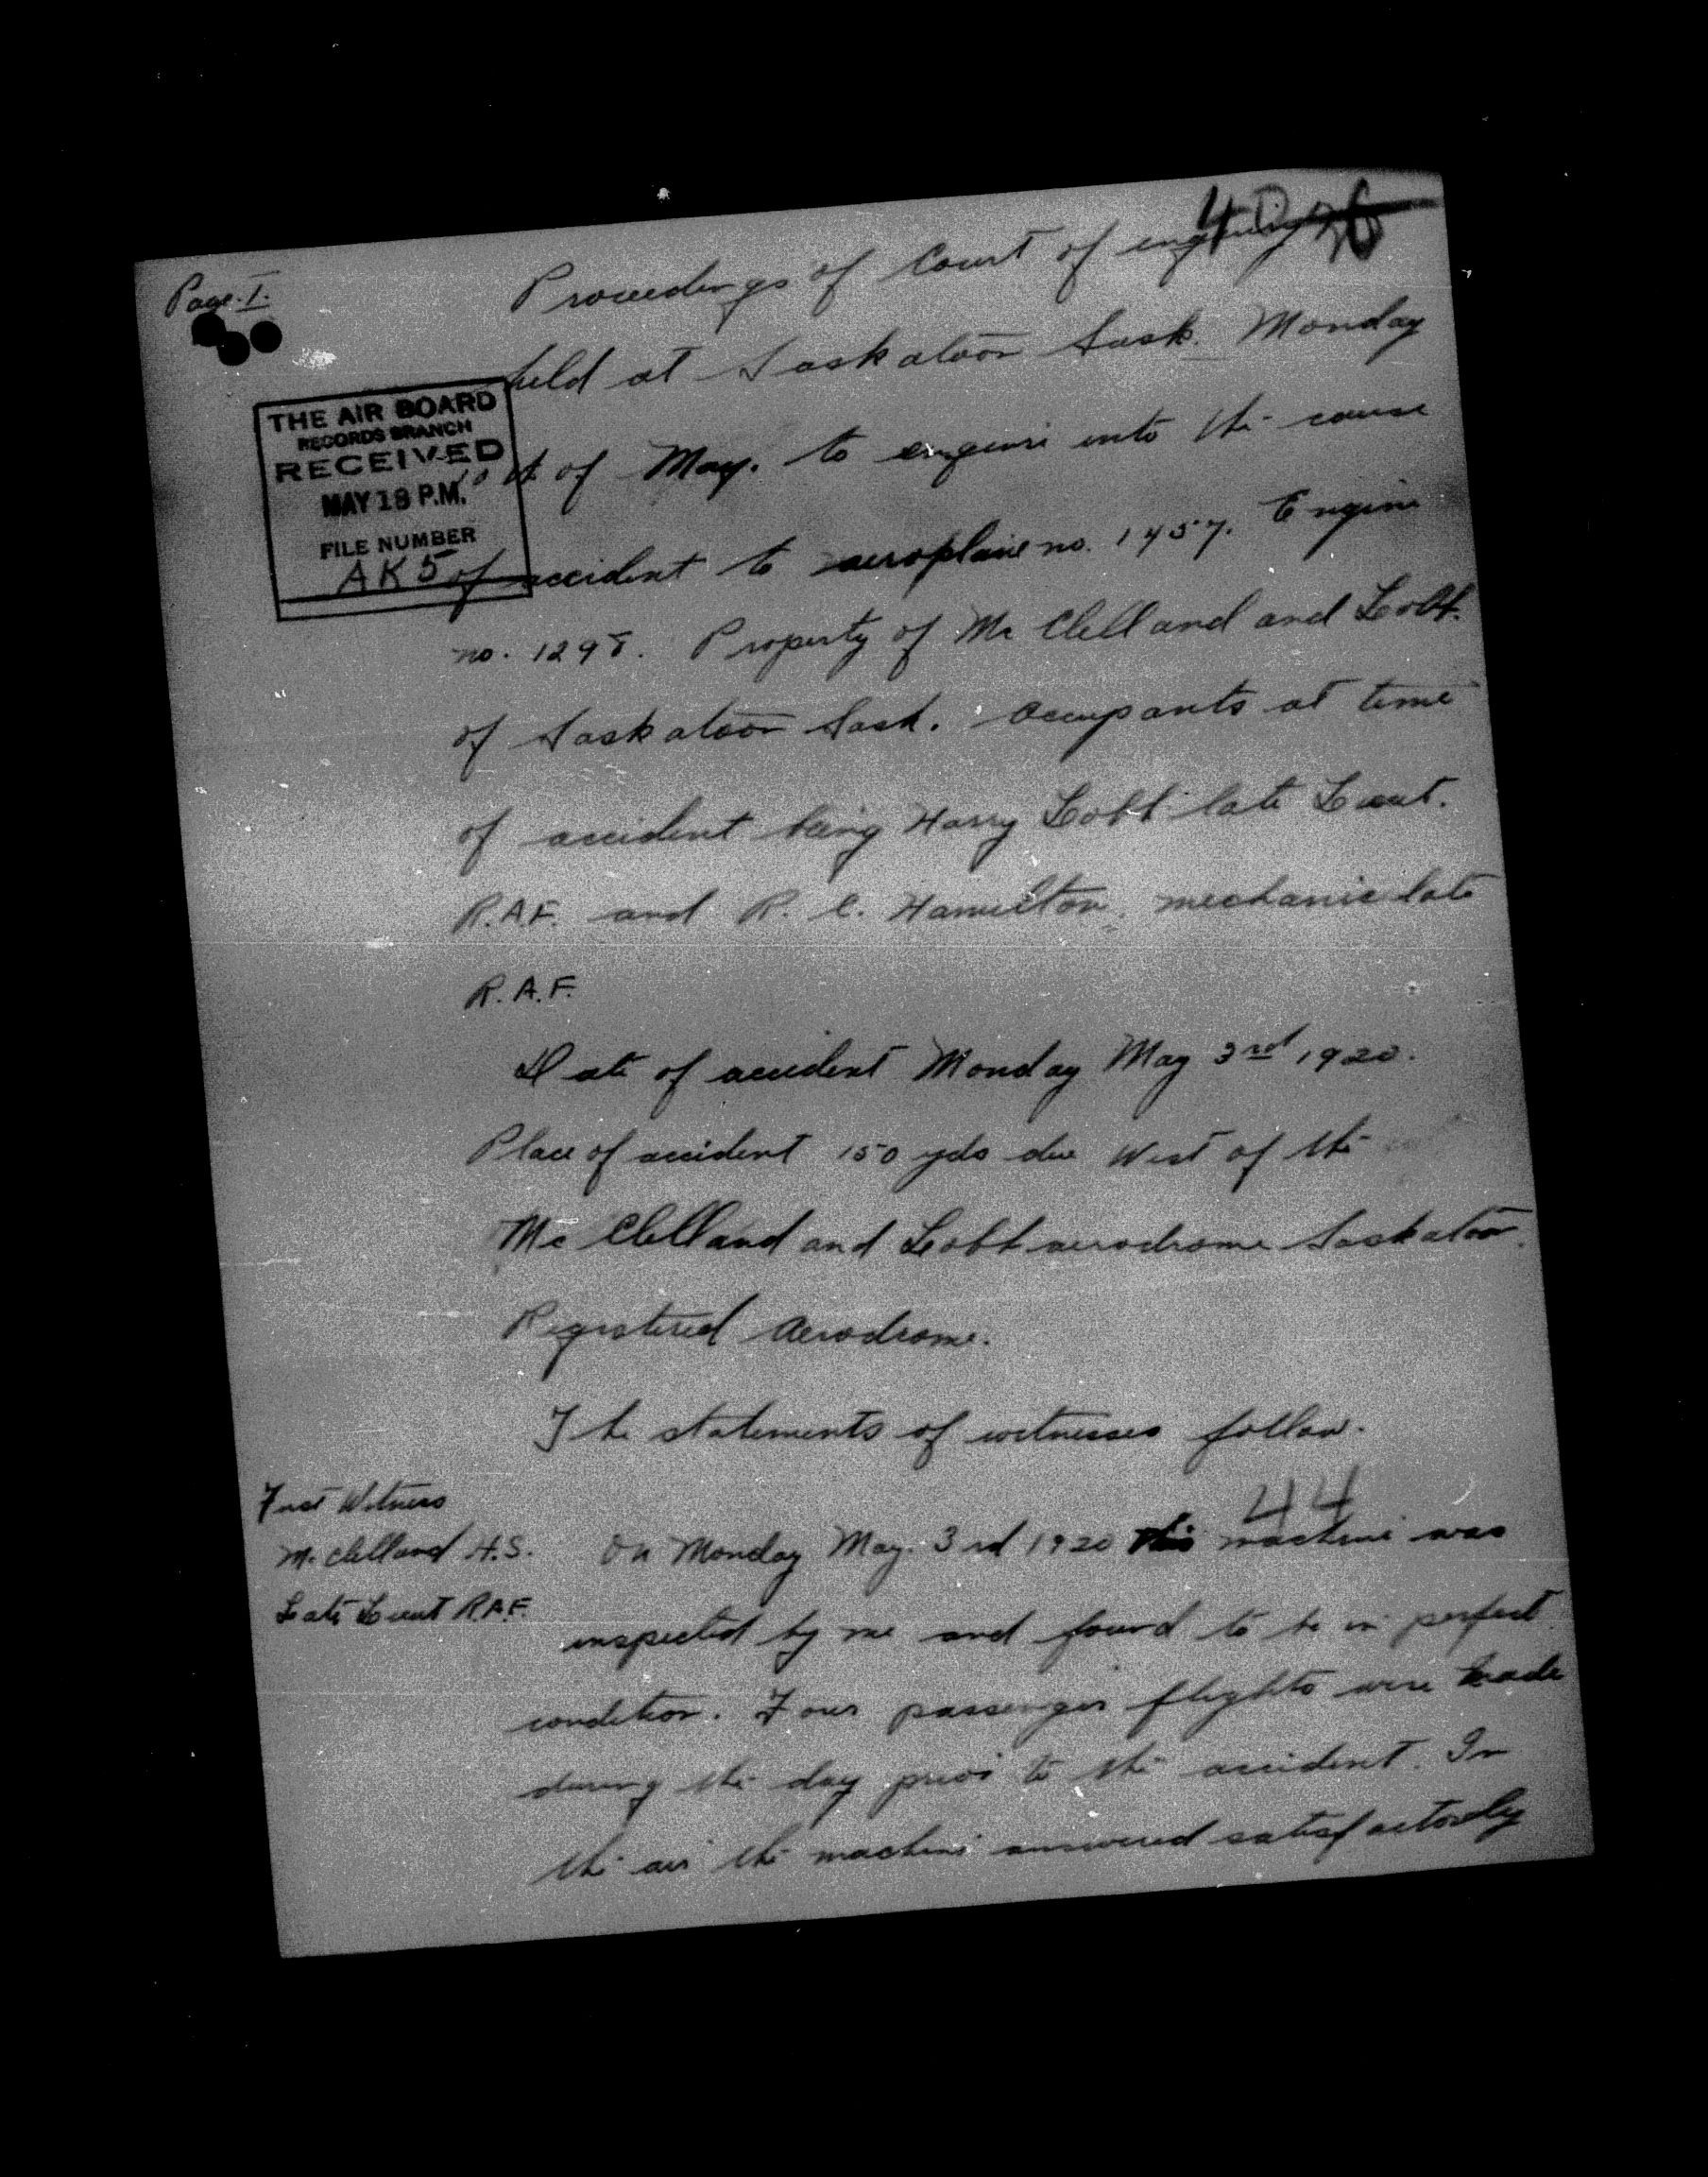 40
Page. I.
Proceedings of Court of enquiry
held at Saskatoon Sask. Monday
THE AIR BOARD
RECORDS BRANCH
RECEIVED
MAY 18 P.M.
FILE NUMBER
AK5
of May. to enquire into the cause
of accident to aeroplane no. 1457. Engine
no. 1298. Property of Mc Clelland and Lobb.
of Saskatoon Sask. Occupants at time
of accident being Harry Lobb late Lieut.
R.A.F. and R. C. Hamilton, mechanic late
R.A.F.
Date of accident Monday May 3rd 1920.
Place of accident 150 yds due West of the
Mc Clelland and Lobb aerodrome Saskatoon.
Registered Aerodrome.
The statements of witnesses follow.
44
First Witness
McClelland H.S.
Late Lieut R.A.F.
On Monday May. 3rd 1920 this machine was
inspected by me and found to be in perfect
condition. Four passenger flights were made
during the day prior to the accident. In
the air the machine answered satisfactorily